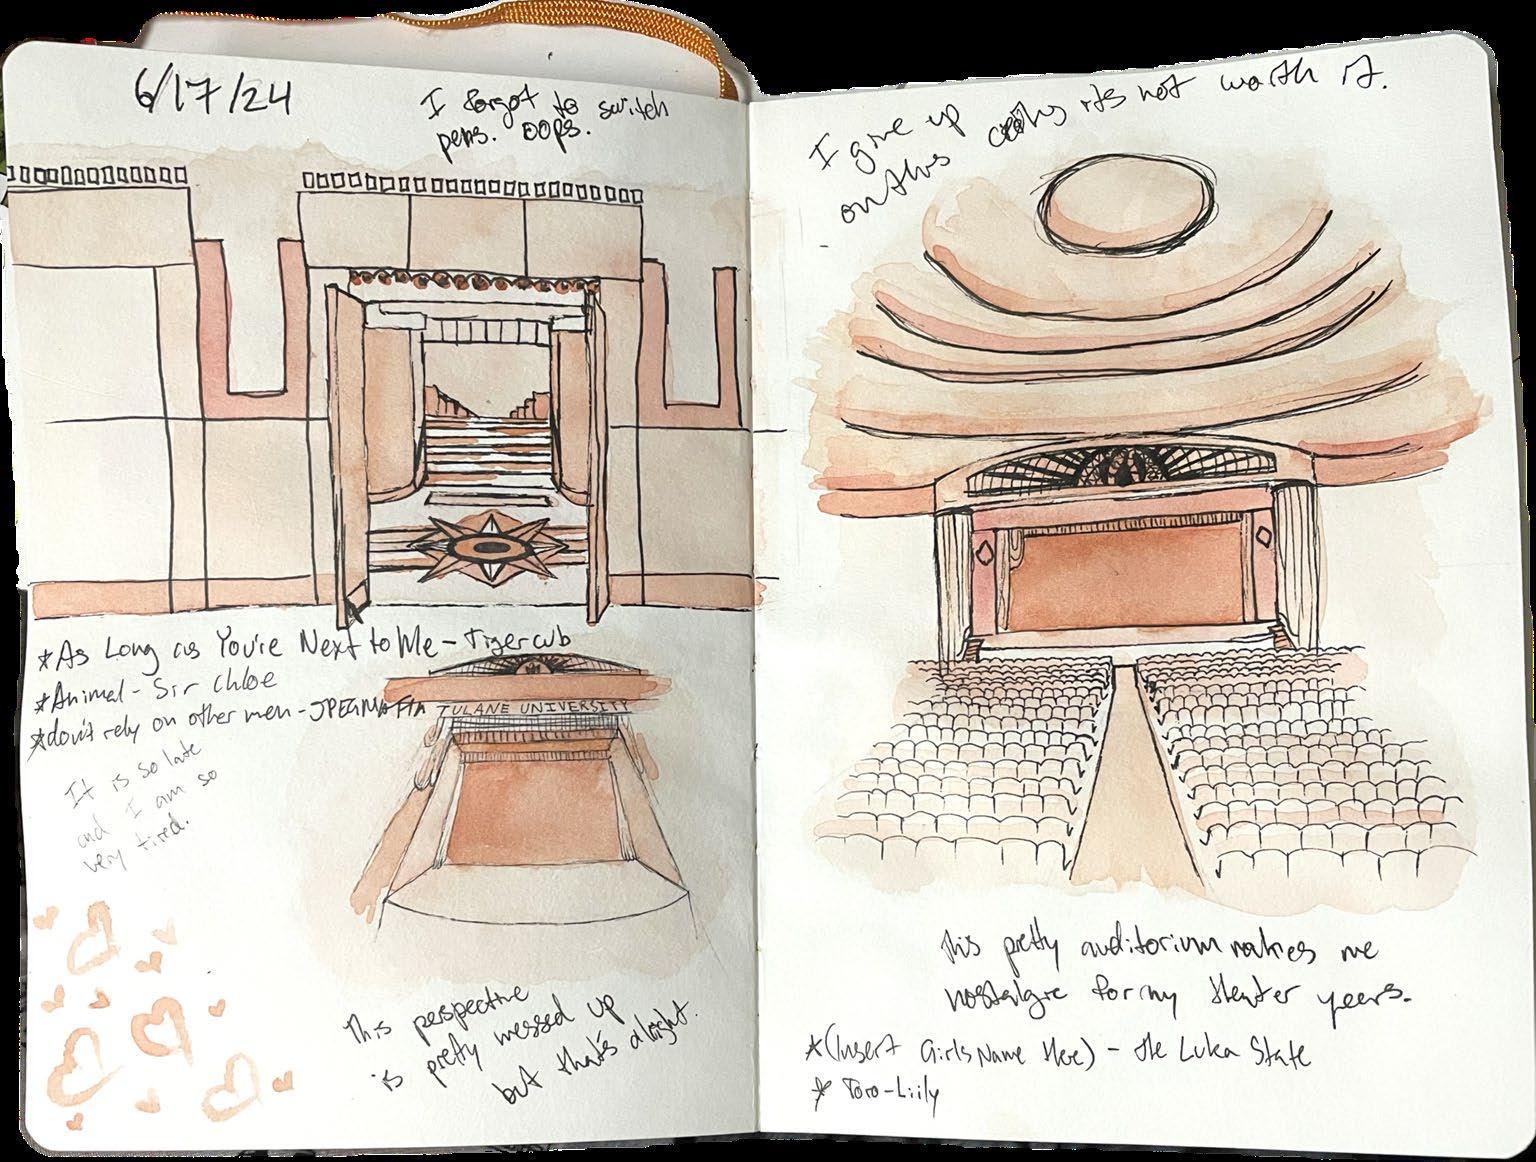 6/17/24
I forgot to switch
pens. oops.
*As Long as You're Next to Me - Tigercub
*Animal - Sir Chloe
*don't rely on other men - JPEGMAFIA
TULANE UNIVERSITY
It is so late
and I am so
very tired.
This perspective
is pretty messed up
but that's alright.
I give up
on this ceiling its not worth it.
This pretty auditorium makes me
nostalgic for my theater years.
*(Insert Girls Name Here) - The Luka State
* Toro - Liily